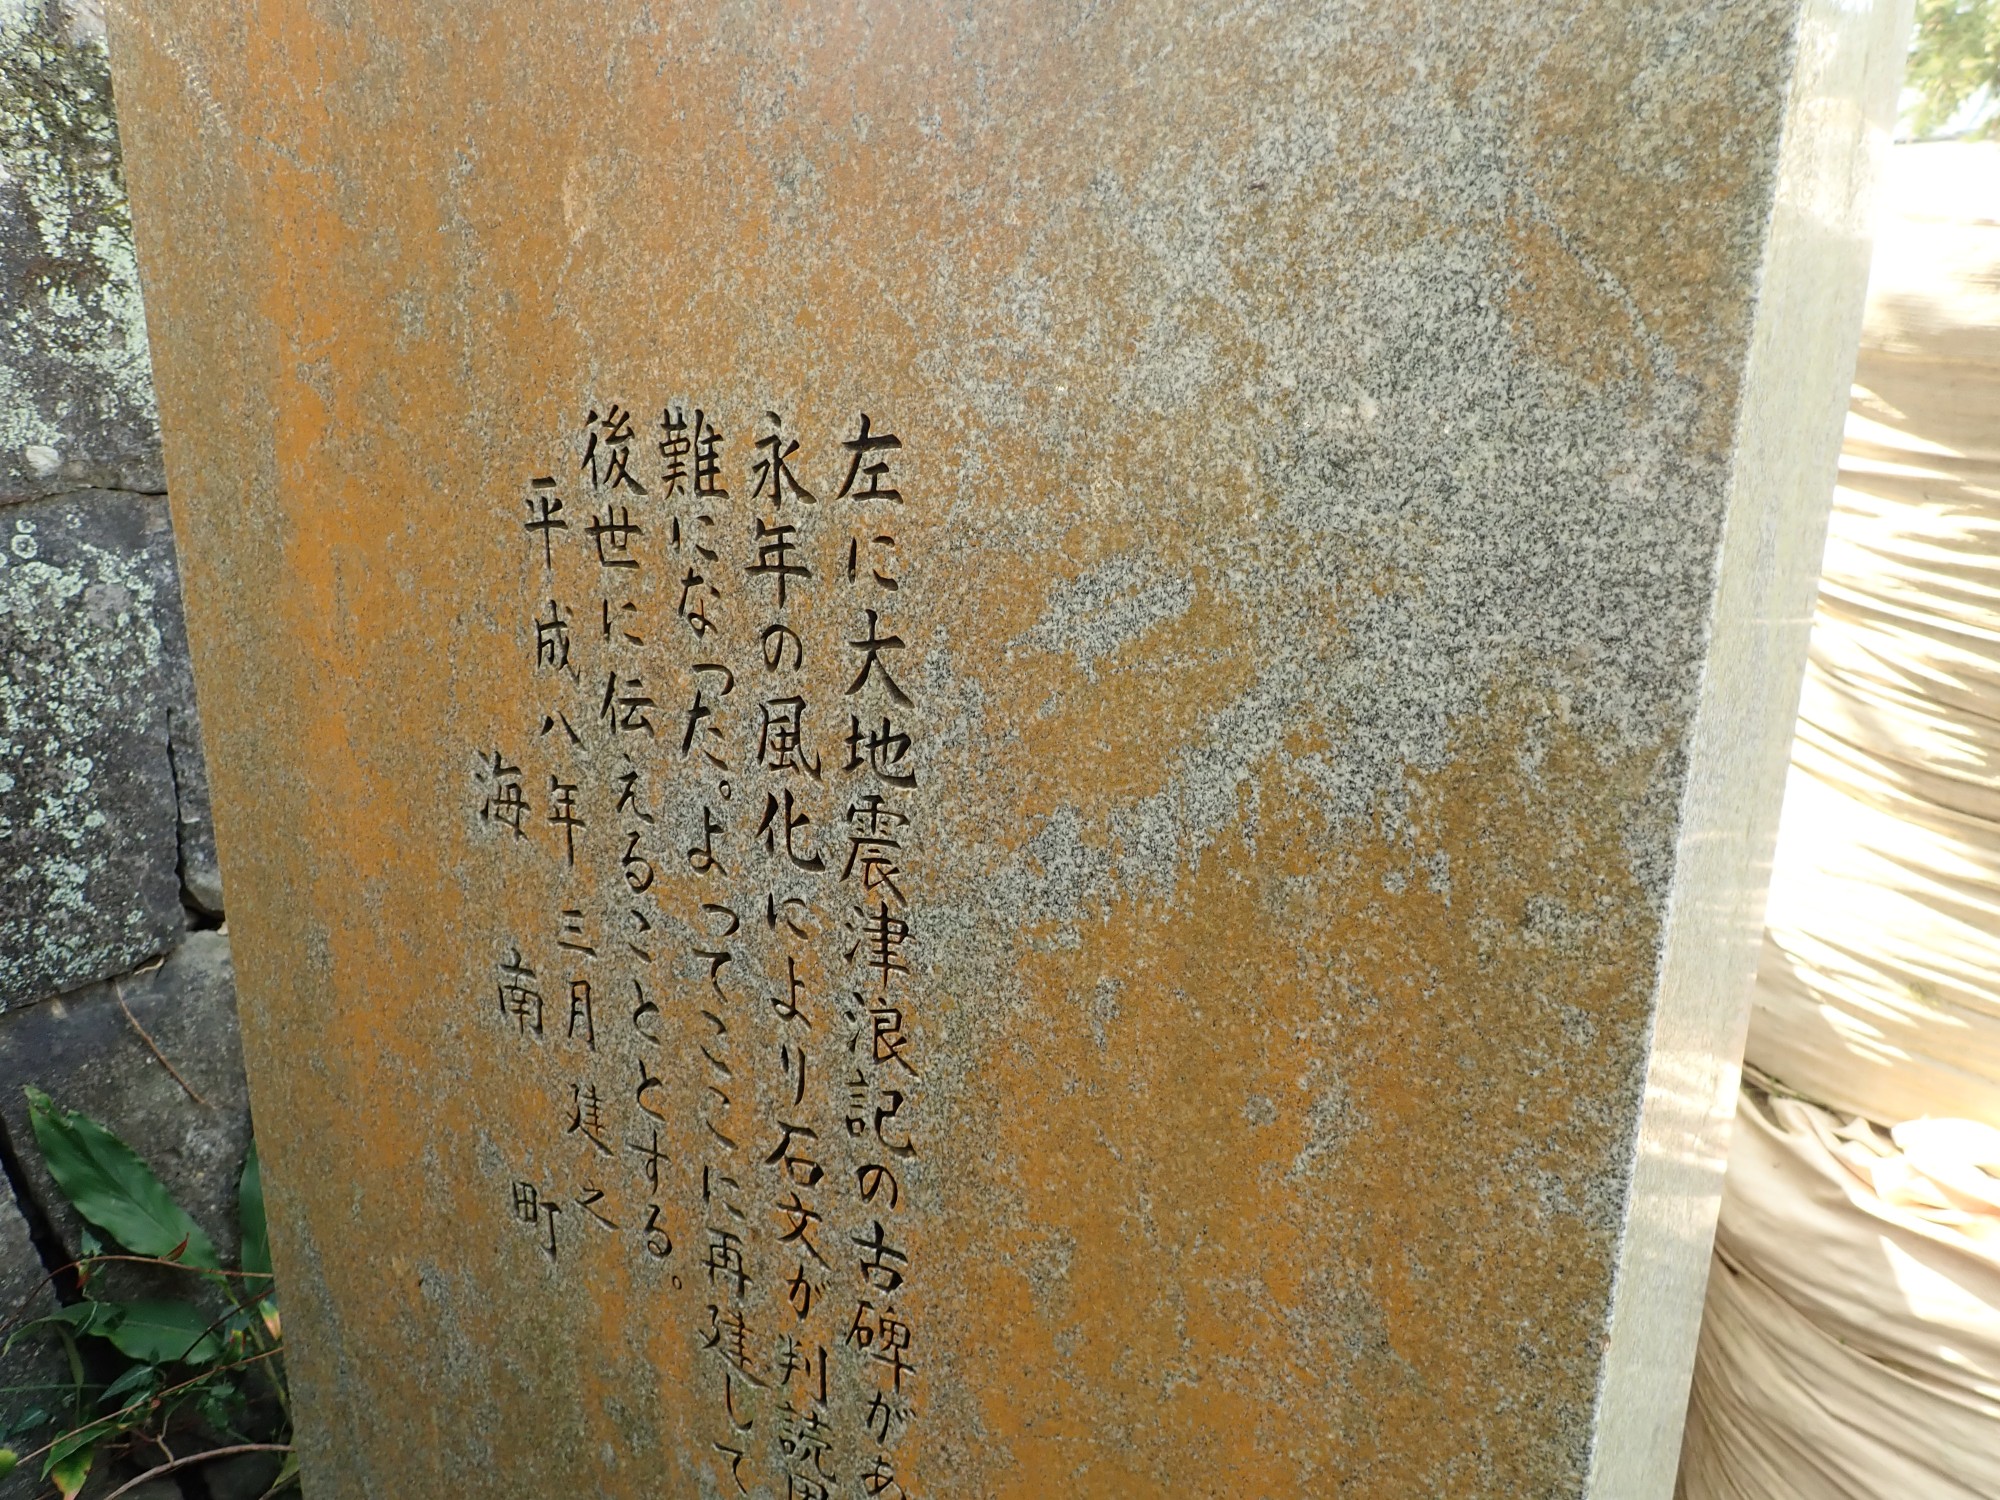 左に大地震津浪記の古碑があ
永年の風化により石文が判読
難になった。よってここに再建して
後世に伝えることとする。
平成八年三月建之
海南町